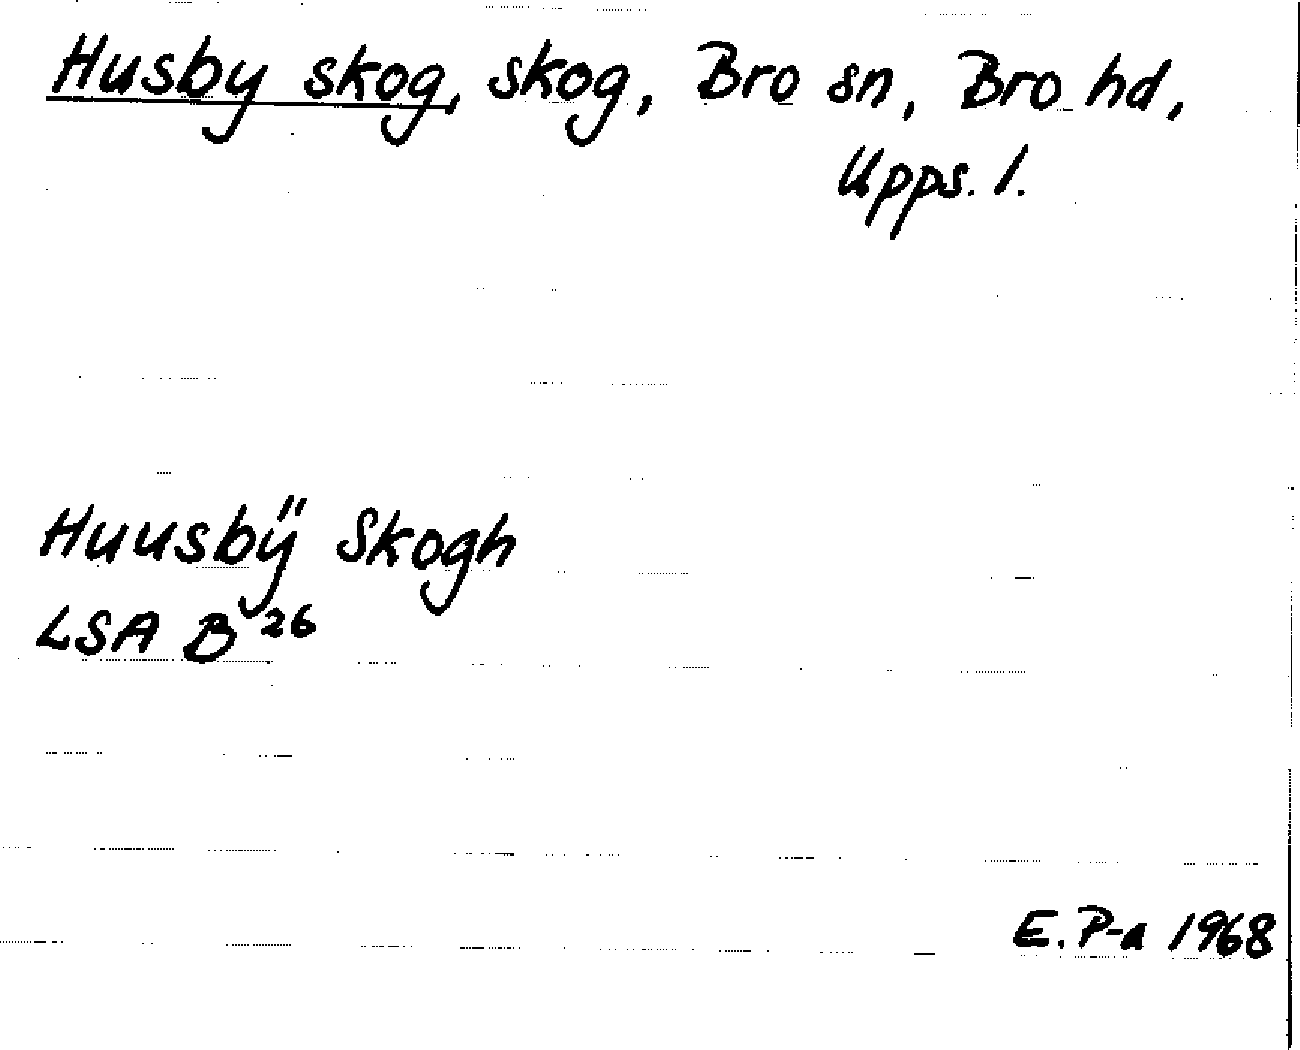 Husby skog, skog, Bro sn, Bro hd,
Upps. l.
Huusbÿ Skogh
LSA B 26
E. P-a 1968